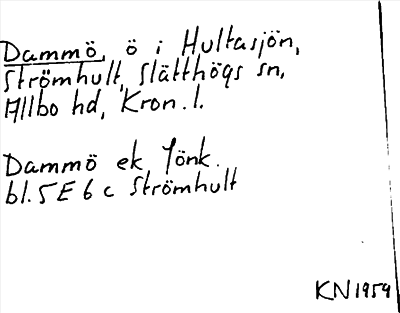 Dammö, ö i Hultasjön,
Strömhult, Slätthögs sn,
Allbo hd, Kron. l.
Dammö ek Jönk.
bl. 5 E 6 c Strömhult
KN 1959